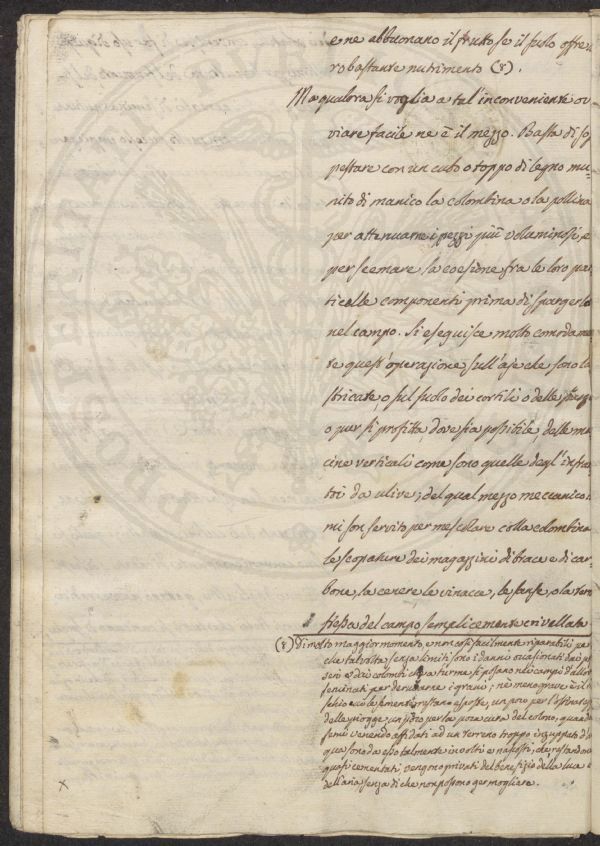 e ne abbuonano il frutto se il suolo offre
robastante nutrimento (8).
Ma qualora si voglia a tal inconveniente ov
viare facile ne è il mezzo. Basta di so
pestare con un cubo o toppo di legno mu-
nito di manico la colombina o la pollina
per attenuarne i pezzi più voluminosi, e
per scemare la coesione fra le loro par
ticelle componenti prima di spargerla
nel campo. Si eseguisce molto comodame
te quest'operazione sull'aje che sono la
stricate, o sul suolo dei cortili o delle
o pur si profitta dove sia possibile, delle ma
cine verticali come sono quelle degl'infran
toi da ulive; del qual mezzo meccanico
mi son servito per mescolare colla colombina
le scopature dei magazzini di brace e di car
bone, la cenere le vinacce, le sanse, o la terra
stessa del campo semplicemente crivellata
(8) Di molto maggior momento, e non così facilmente riparabili, per
che talvolta senza limiti sono i danni cagionati dai
e dai colombi che a turme si posano nei campi d'allor
seminati per derubarne i grani; nè meno grave è il
restano esposte, un per l'ostinato
delle piogge un per la poca cura del colono, quand
semi venendo affidati ad un terreno troppo inzuppato d'a
qua sono da esso talmente involti e nascosti, che restando
quasi cementati vengono privati del benefizio della luce e
dell'aria senza di che non possono germogliare.